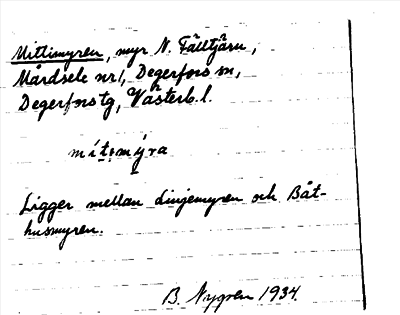 Mittimyren, myr N. Fälltjärn,
Mårdsele nr 1, Degerfors sn,
Degerfors tg, Västerb. l.
mítımýra
Ligger mellan Linjemyren och Båt-
husmyren.
B. Nygren 1934.